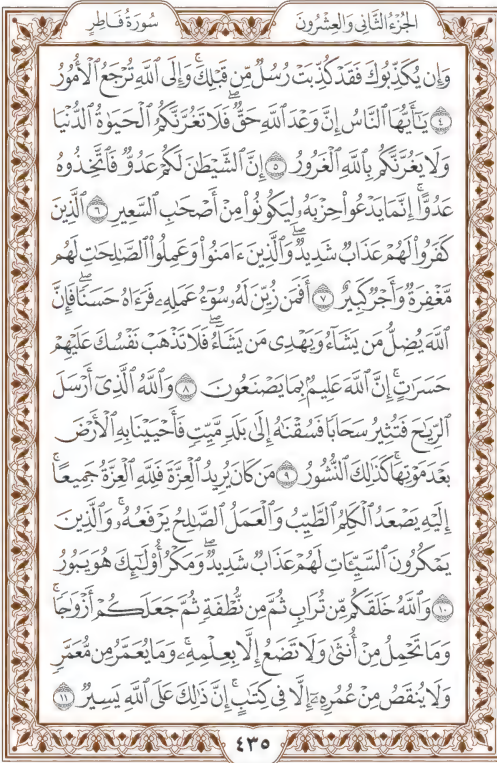 الجُزْءُ الثَّانِي وَالعِشْرُونَ سُورَةُ فَاطِرٍ
وَإِن يُكَذِّبُوكَ فَقَدْ كُذِّبَتْ رُسُلٌ مِّن قَبْلِكَۚ وَإِلَى ٱللَّهِ تُرْجَعُ ٱلْأُمُورُ
٤ يَٰٓأَيُّهَا ٱلنَّاسُ إِنَّ وَعْدَ ٱللَّهِ حَقٌّۖ فَلَا تَغُرَّنَّكُمُ ٱلْحَيَوٰةُ ٱلدُّنْيَا
وَلَا يَغُرَّنَّكُم بِٱللَّهِ ٱلْغَرُورُ ٥ إِنَّ ٱلشَّيْطَٰنَ لَكُمْ عَدُوٌّ فَٱتَّخِذُوهُ
عَدُوًّاۚ إِنَّمَا يَدْعُوا۟ حِزْبَهُۥ لِيَكُونُوا۟ مِنْ أَصْحَٰبِ ٱلسَّعِيرِ ٦ ٱلَّذِينَ
كَفَرُوا۟ لَهُمْ عَذَابٌ شَدِيدٌۖ وَٱلَّذِينَ ءَامَنُوا۟ وَعَمِلُوا۟ ٱلصَّٰلِحَٰتِ لَهُم
مَّغْفِرَةٌ وَأَجْرٌ كَبِيرٌ ٧ أَفَمَن زُيِّنَ لَهُۥ سُوٓءُ عَمَلِهِۦ فَرَءَاهُ حَسَنًاۖ فَإِنَّ
ٱللَّهَ يُضِلُّ مَن يَشَآءُ وَيَهْدِى مَن يَشَآءُۖ فَلَا تَذْهَبْ نَفْسُكَ عَلَيْهِمْ
حَسَرَٰتٍۚ إِنَّ ٱللَّهَ عَلِيمٌۢ بِمَا يَصْنَعُونَ ٨ وَٱللَّهُ ٱلَّذِىٓ أَرْسَلَ
ٱلرِّيَٰحَ فَتُثِيرُ سَحَابًا فَسُقْنَٰهُ إِلَىٰ بَلَدٍ مَّيِّتٍ فَأَحْيَيْنَا بِهِ ٱلْأَرْضَ
بَعْدَ مَوْتِهَاۚ كَذَٰلِكَ ٱلنُّشُورُ ٩ مَن كَانَ يُرِيدُ ٱلْعِزَّةَ فَلِلَّهِ ٱلْعِزَّةُ جَمِيعًاۚ
إِلَيْهِ يَصْعَدُ ٱلْكَلِمُ ٱلطَّيِّبُ وَٱلْعَمَلُ ٱلصَّٰلِحُ يَرْفَعُهُۥۚ وَٱلَّذِينَ
يَمْكُرُونَ ٱلسَّيِّـَٔاتِ لَهُمْ عَذَابٌ شَدِيدٌۖ وَمَكْرُ أُو۟لَٰٓئِكَ هُوَ يَبُورُ
١٠ وَٱللَّهُ خَلَقَكُم مِّن تُرَابٍ ثُمَّ مِن نُّطْفَةٍ ثُمَّ جَعَلَكُمْ أَزْوَٰجًاۚ
وَمَا تَحْمِلُ مِنْ أُنثَىٰ وَلَا تَضَعُ إِلَّا بِعِلْمِهِۦۚ وَمَا يُعَمَّرُ مِن مُّعَمَّرٍ
وَلَا يُنقَصُ مِنْ عُمُرِهِۦٓ إِلَّا فِى كِتَٰبٍۚ إِنَّ ذَٰلِكَ عَلَى ٱللَّهِ يَسِيرٌ ١١
٤٣٥